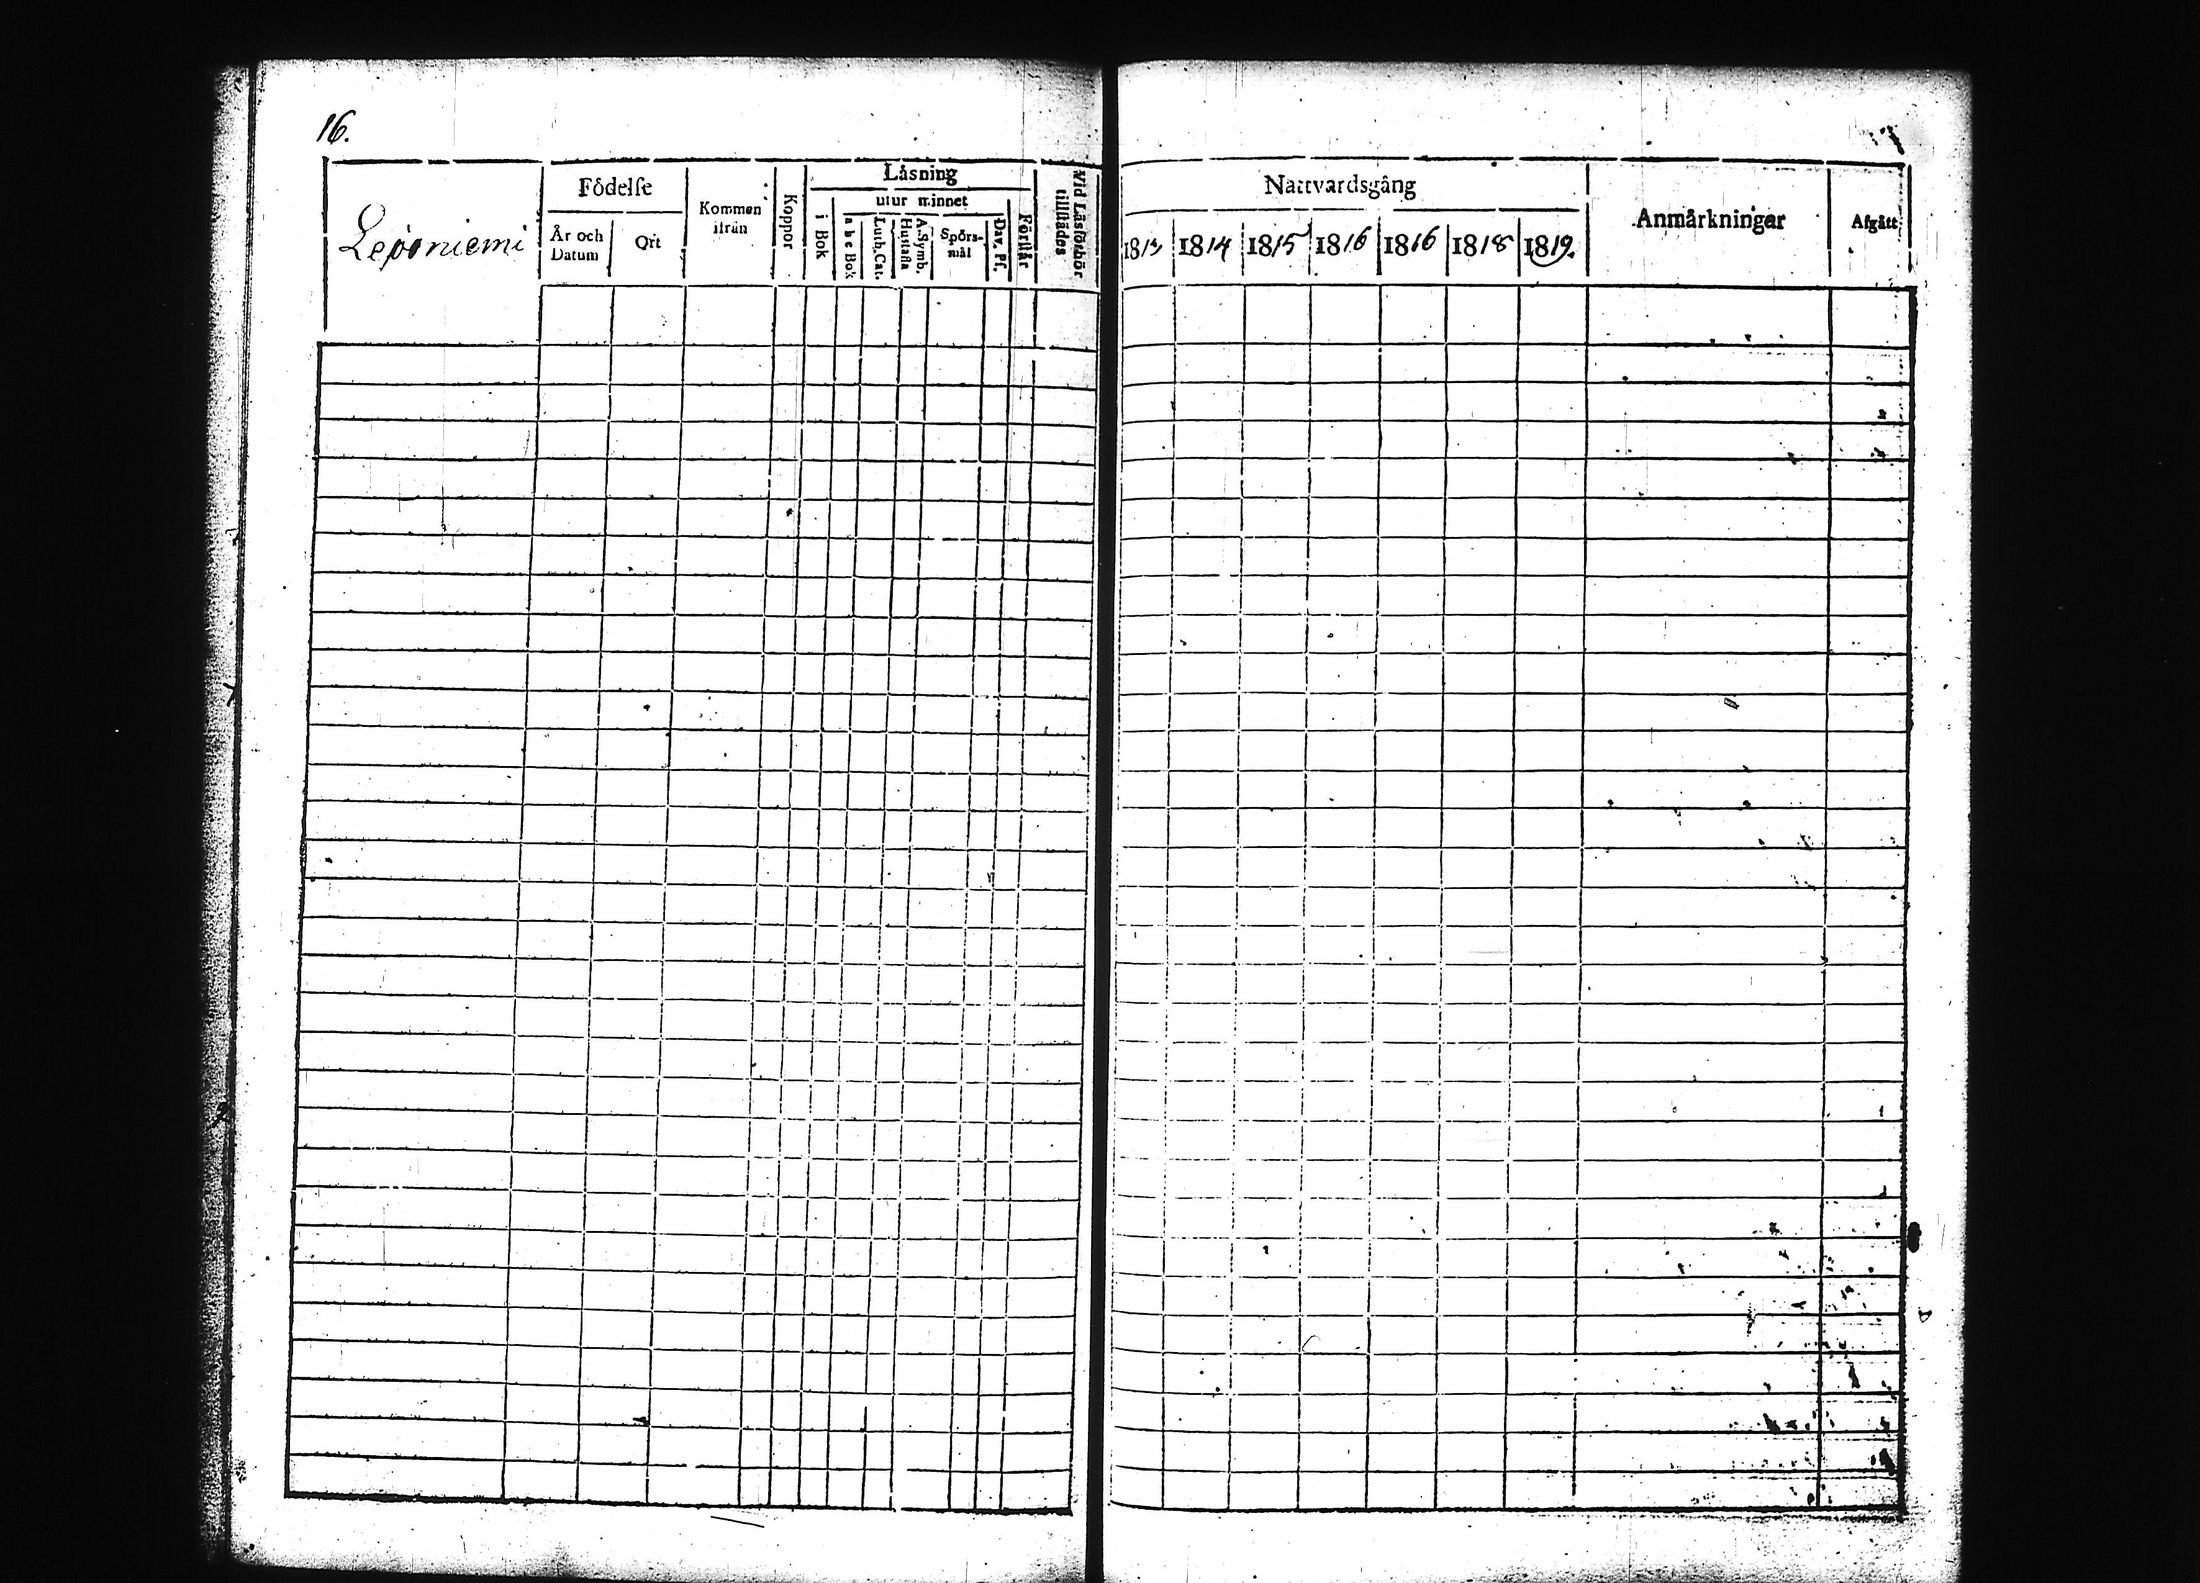 16.
Leponiemi
Födelse
År och Datum
Ort
Kommen ifrån
Koppor
Läsning
i Bok
utur minnet
a b c Bok
Luth. Cat.
Hustafla
A. Symb.
Spörs-
mål
Dav. Ps.
Förstår
Vid Läsförhör
tillstädes
Nattvardsgång
1813 1814 1815 1816 1816 1818 1819.
Anmärkningar
Afgått